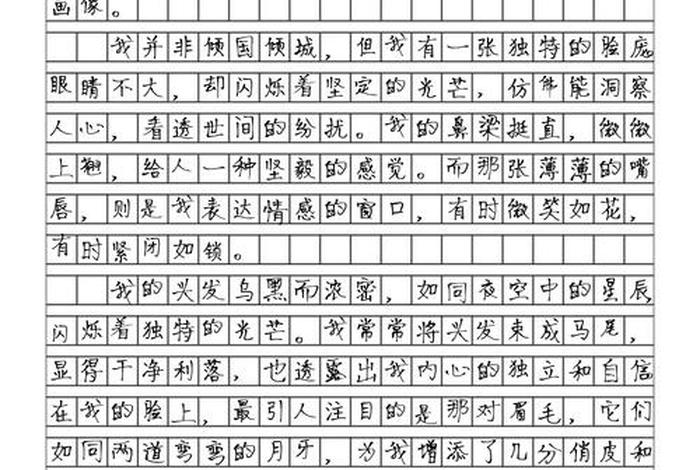 画像。
我并非倾国倾城，但我有一张独特的脸庞
眼睛不大，却闪烁着坚定的光芒，仿佛能洞察
人心，看透世间的纷扰。我的鼻梁挺直，微微
上翘，给人一种坚毅的感觉。而那张薄薄的嘴
唇，则是我表达情感的窗口，有时微笑如花，
有时紧闭如锁。
我的头发乌黑而浓密，如同夜空中的星辰
闪烁着独特的光芒。我常常将头发束成马尾，
显得干净利落，也透露出我内心的独立和自信
在我的脸上，最引人注目的是那对眉毛，它们
如同两道弯弯的月牙，为我增添了几分俏皮和